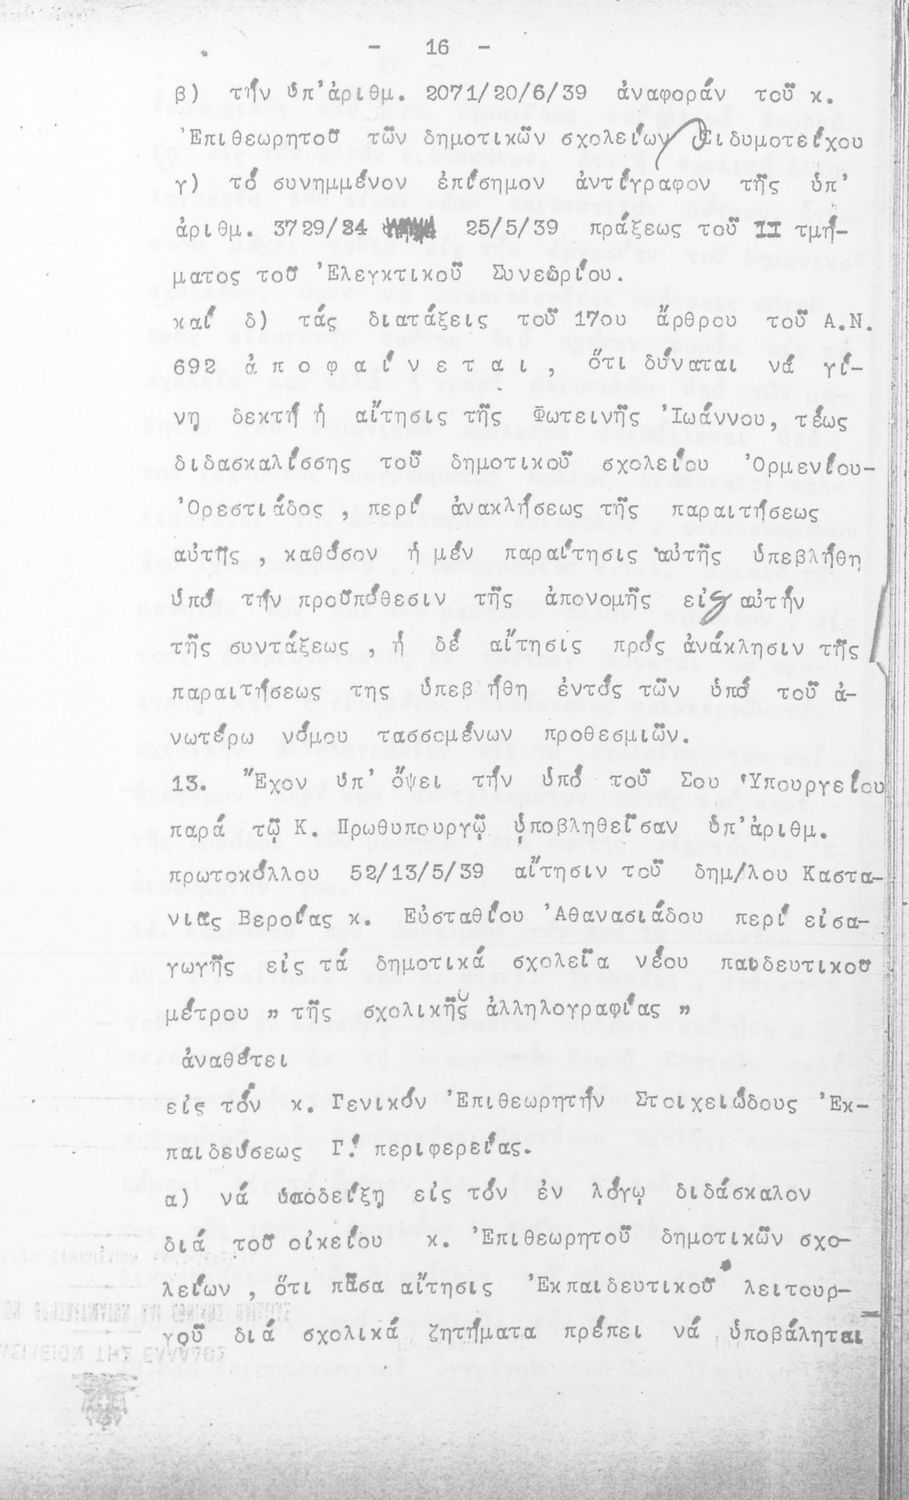 - 16 -
β) τήν ὑπ'ἀριθμ. 2071/20/6/39 ἀναφοράν τοῦ κ.
Ἐπιθεωρητοῦ τῶν δημοτικῶν σχολείων Διδυμοτείχου
γ) τό συνημμένον ἐπίσημον ἀντίγραφον τῆς ὑπ'
ἀριθμ. 3729/24 25/5/39 πράξεως τοῦ II τμή-
ματος τοῦ Ἐλεγκτικοῦ Συνεδρίου.
καί δ) τάς διατάξεις τοῦ 17ου ἄρθρου τοῦ Α.Ν.
692 ἀ π ο φ α ί ν ε τ α ι , ὅτι δύναται νά γί-
νη δεκτή ἡ αἴτησις τῆς Φωτεινῆς Ἰωάννου, τέως
διδασκαλίσσης τοῦ δημοτικοῦ σχολείου Ὀρμενίου-
Ὀρεστιάδος , περί ἀνακλήσεως τῆς παραιτήσεως
αὐτῆς , καθόσον ἡ μέν παραίτησις αὐτῆς ὑπεβλήθη
ὑπό τήν προϋπόθεσιν τῆς ἀπονομῆς εἰς αὐτήν
τῆς συντάξεως , ἡ δέ αἴτησις πρός ἀνάκλησιν τῆς
παραιτήσεως της ὑπεβ ήθη ἐντός τῶν ὑπό τοῦ ἀ-
νωτέρω νόμου τασσομένων προθεσμιῶν.
13. Ἔχον ὑπ' ὄψει τήν ὑπό τοῦ Σου Ὑπουργείου
παρά τῷ Κ. Πρωθυπουργῷ ὑποβληθεῖσαν ὑπ'ἀριθμ.
πρωτοκόλλου 52/13/5/39 αἴτησιν τοῦ δημ/λου Καστα-
νιᾶς Βεροίας κ. Εὐσταθίου Ἀθανασιάδου περί εἰσα-
γωγῆς εἰς τά δημοτικά σχολεῖα νέου παιδευτικοῦ
μέτρου " τῆς σχολικῆς ἀλληλογραφίας "
ἀναθέτει
εἰς τόν κ. Γενικόν Ἐπιθεωρητήν Στοιχειώδους Ἐκ-
παιδεύσεως Γ.' περιφερείας.
α) νά ὑποδείξῃ εἰς τόν ἐν λόγῳ διδάσκαλον
διά τοῦ οἰκείου κ. Ἐπιθεωρητοῦ δημοτικῶν σχο-
λείων , ὅτι πᾶσα αἴτησις Ἐκπαιδευτικοῦ λειτουρ-
γοῦ διά σχολικά ζητήματα πρέπει νά ὑποβάληται